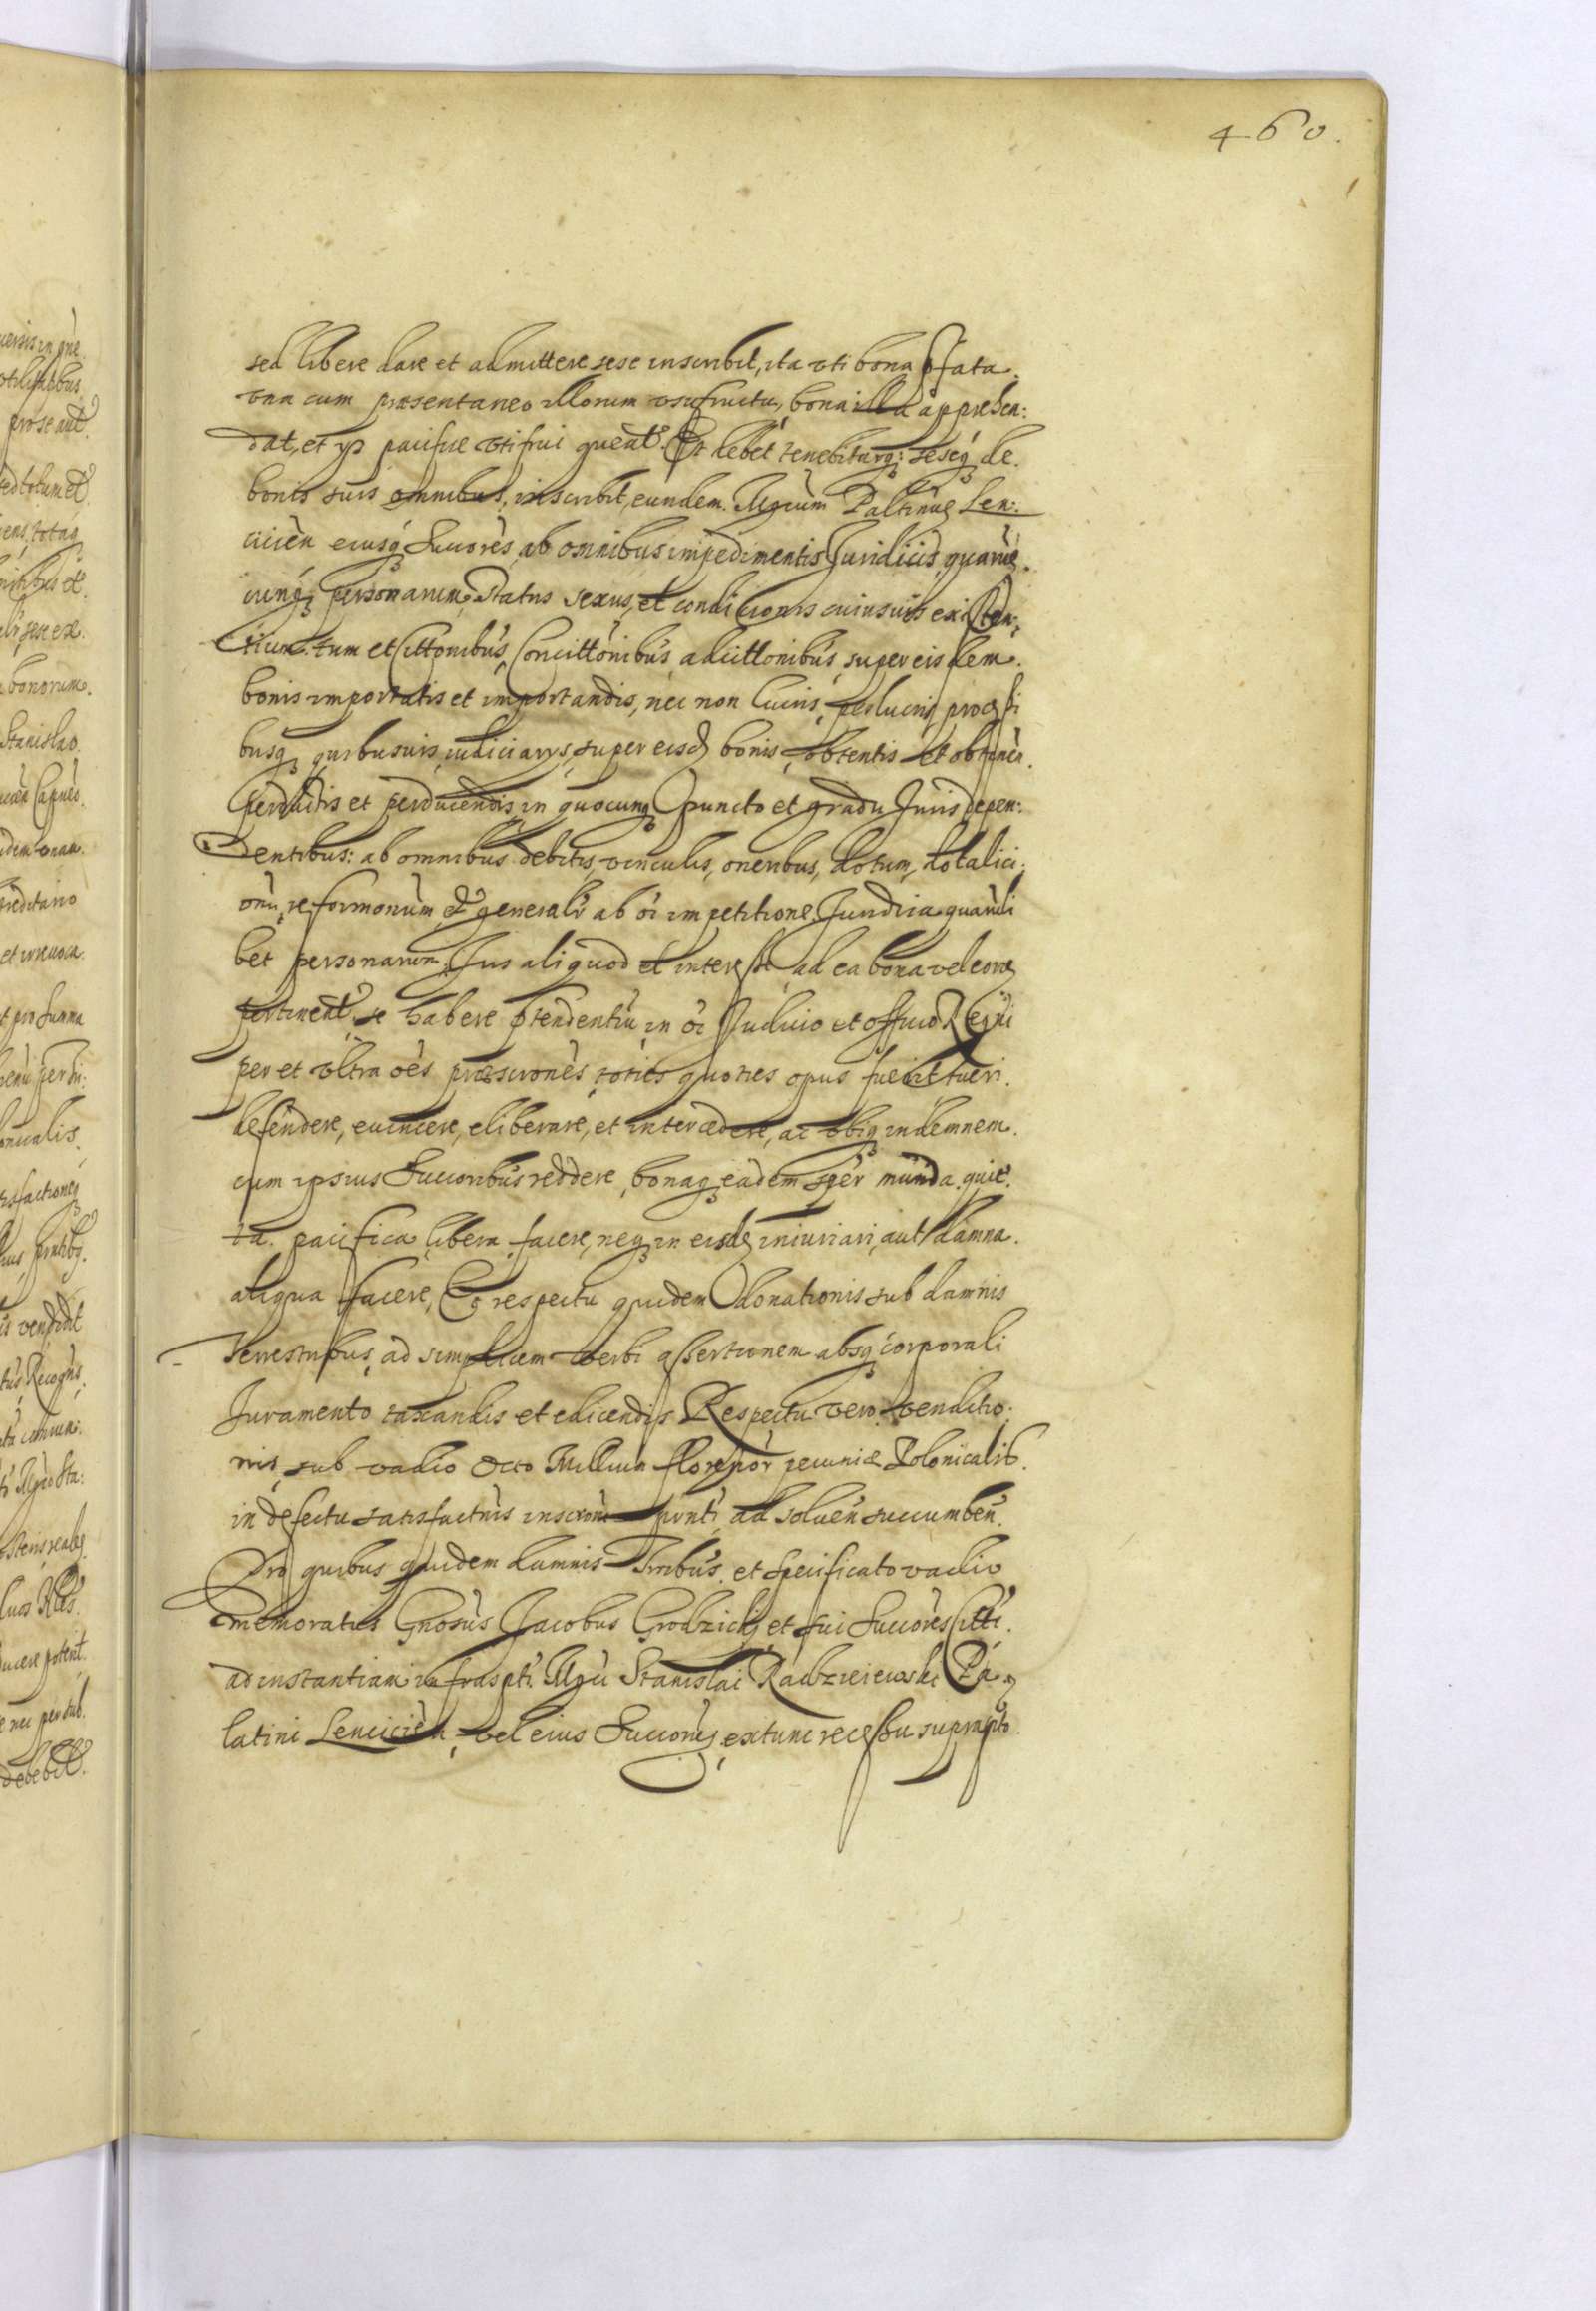 460.
sed libere dare et admittere sese inscribit, ita vti bona pfata
vna cum præsentaneo illorum vsufructu, bona illa apprehen:
dat, et ijs pacifice vti frui queat. Et debet tenebiturq; seseq de
bonis suis omnibus, inscribit, eundem Mgcum Paltinũ Len:
cicień eiusq Succorès, ab omnibus impedimentis Juridicis, quarũ
cunq personarum status sexus, et condicionis cuiusuis existen
tium. tum et Cittonibus, Concittonibus adcittonibus super eisdem
bonis importatis et importandis, nec non lucris, perlucris, procssi
busq, quibusuis, iudiciarijs, super eisd bonis, obtentis et obtineń
perductis et perducendis, in quocunq puncto et gradu Juris depen:
dentibus: ab omnibus debitis, vinculis, oneribus, dotum, dotalici:
onũ, reformonum et generalr ab oi impetitione Juridica quarũli
bet personarum, Jus aliquod et interesse ad ea bona vel eorũ
pertinent. se habere ptendentiũ in oi Judicio et officio Regni
per et vltra oes præscriones, toties quoties opus fuerit tueri
defendere, euincere, eliberare, et intercedere, ac vbiq indemnem
cum ipsius Succoribus reddere, bonaq eadem sper munda. quie
ta. pacifica, libera facere, neq in eisd iniuriari, aut damna
aliqua facere, Et respectu quidem donationis sub damnis
terrestribus, ad simplicem verbi assertionem absq corporali
Juramento taxandis et edicendis Respectu vero venditio:
nis, sub vadio Octo Millium flor pòr pecuniæ Polonicalis
in defectu satisfactnis inscroni pnti ad soluen succumben
Pro quibus quidem damnis Trribus. et specificato vadio
memoratus Gnosus Jacobus Grodzicki, et sui Succores Citti
ad instantiam infrascpti. Mgci Stanislai Radzieiewski Pa
latini Lencicień, vel eius Succorũ, extunc recessu suprapto